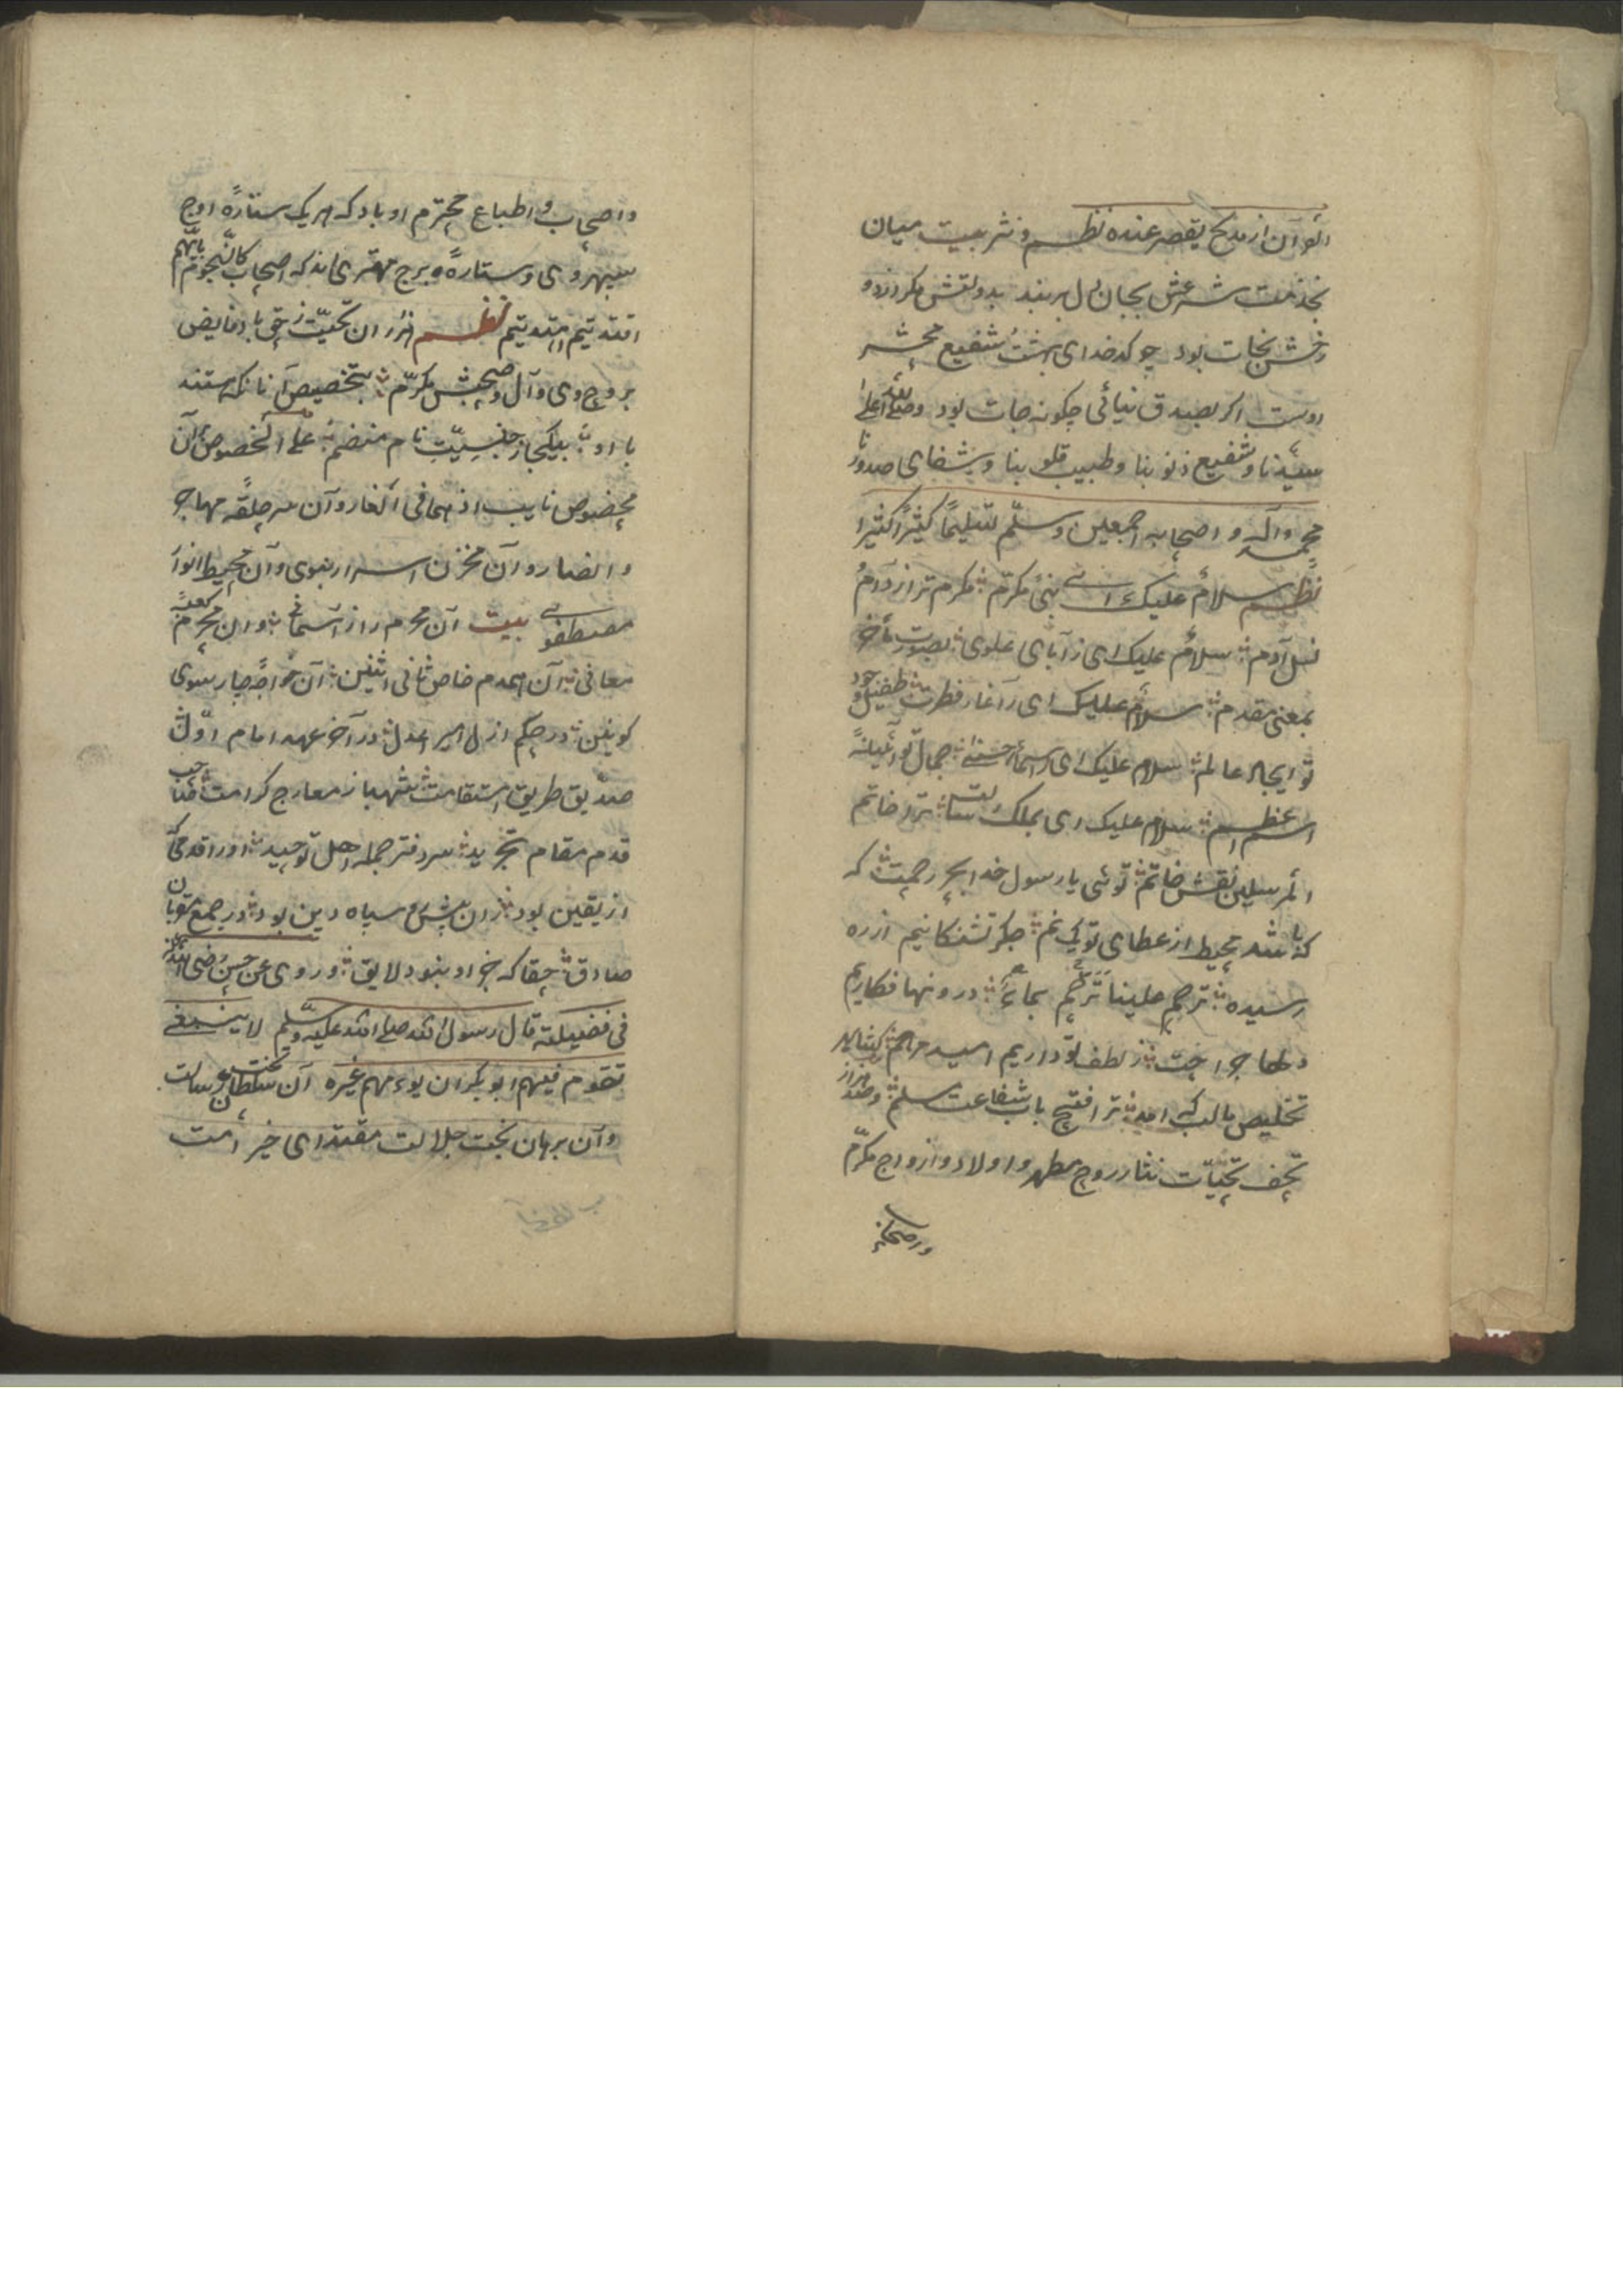 الوان از مدح یقصر عنده نظم و نثر بیت میان
بخدمت شرعش بجان و دل بربند بدولتش مکر
نجات بود چو کدخدای بهشت شفیع محشر
اوست اکر بصدق نیائی چکونه جات بود وصلی الله علی
سیدنا و شفیع ذنوبنا و طبیب قلوبنا و شفای صدورنا
محمد وآله و اصحابه اجمعین وسلم تسلیماً کثیراً کثیرا
نظم سلامٌ علیک ای نبئ مکرّم مکرم تر از آدم
نسل آدم سلامٌ علیک ای ز آبای علوی بصورت مؤخر
بمعنی مقدم سلامٌ علیک ای ز آغاز فطرت طفیل وجود
تو ایجاد عالم سلام علیک ای ز اسماء حسنی جمال تو آئینهٔ
اسم اعظم سلام علیک ای بملک رسالت ترا خاتم
المرسلین نقش خاتم توئی یا رسول خدا بحر رحمت که
باشد محیط از عطای تو یک نم جکر تشنکانیم از ره
رسیده ترحم علینا ترحم بماءٍ درونها فکاریم
دلها جراحت ز لطف تو داریم امید مرهم نکشاید
تخلیص ما لب کی آمد ترا فتح باب شفاعت مسلم وصد هزار
تحف تحیّات نثار روح مطهر و اولاد و ازواج مکرّم
واصحاب
واصحاب و اطباع محترم او باد که هر یک ستارهٔ اوج
سپهروی و ستارهٔ برج مهتری اند که اصحابی کالنجوم بایهم
اقتدیتم اهتدیتم نظم هزاران تحیّت ز حق باد فایض
بروح وی و آل و صحبش مکرّم بتخصیص آنانکه هستند
با او بیکجا ز جنسیّت نام منضم علی الخصوص آن
مخصوص نایب اذ هما فی الغار و آن سرحلقه مهاجر
وانصار و آن مخزن اسرار نبوی و آن محیط انوار
مصطفوی بیت آن محرم راز آسمانی وان محرم کعبهٔ
معانی آن همدم خاص ثانی اثنین آن خواجهٔ چارسوی
کونین در حکم ازل امیر اعدل در آخر عهد امام اوّل
صدّیق طریق استقامت شهباز معارج کرامت صاحب
قدم مقام تجرید سر دفتر جمله اهل توحید اورا قدمی
از یقین بود زان پیش سپاه دین بود در جمع
صادق حقا که جز او نبود لایق و روی عن حسن رضی الله عنه
فی فضیلته قال رسول الله صلی الله علیه وسلّم لا ینبغی
لقوم فیهم ابو بکر ان یؤمهم غیره آن سلطان تخت رسالت
و آن برهان جلالت مقتدای خیر امت